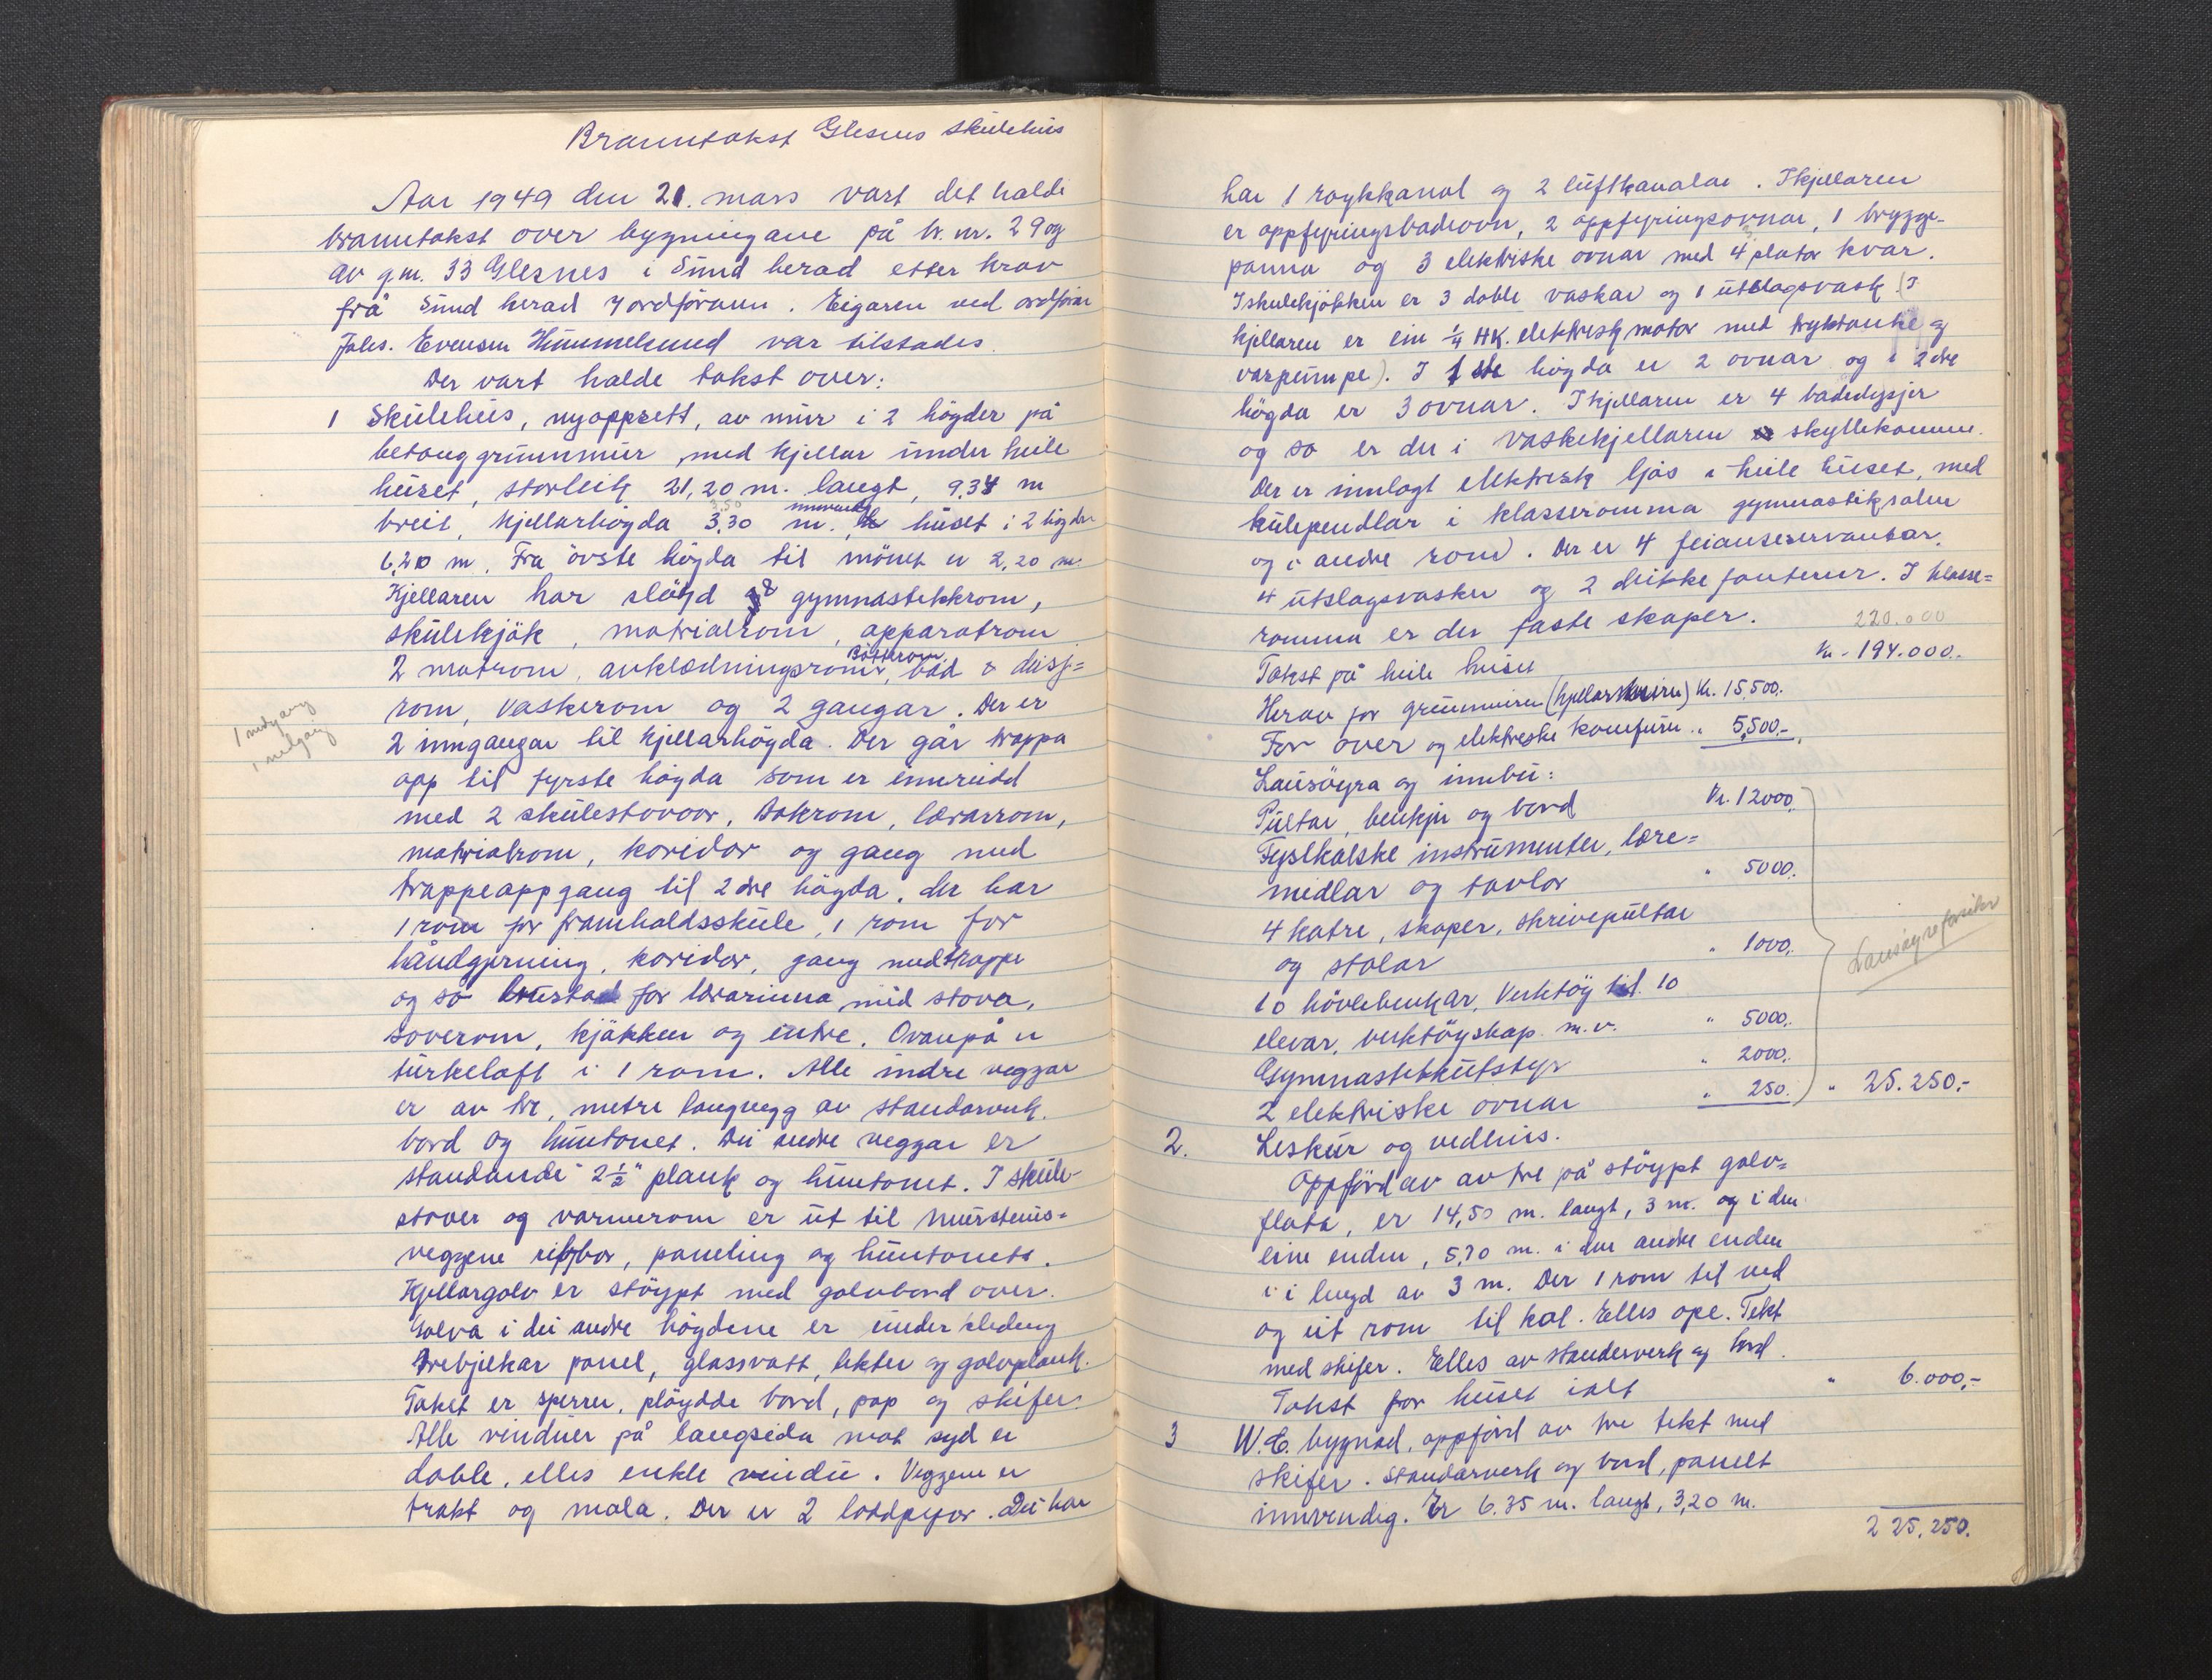 Branntakst Glesnes skulehus
Aar 1949 den 21. mars vart det halde
branntakst over bygningane på br. nr. 29 og
av g.nr. 33 Glesnes i Sund herad etter krav
frå Sund herad v/ordføraren. Eigaren ved ordførar
Johs. Evensen Hummelsund var tilstades.
Der vart halde takst over:
1 Skulehus, nyoppsett, av mur i 2 högder på
betonggrunnmur, med kjellar under heile
huset, storleik 21,20 m. langt, 9.34 m
breit, kjellarhögda 3.30 m. innvendig huset i 2 högder
6,20 m. Fra övste högda til mönet er 2,20 m.
Kjellaren har slöyd og gymnastikkrom,
skulekjök, matrialrom, apparatrom
2 matrom, avklædningsrom, Bötterom, bad & dusj=
rom, vaskerom og 2 gangar. Der er
1 nedgang
1 nedgang
2 inngangar til kjellarhögda. Der går trappa
opp til fyrste högda som er innreidd
med 2 skulestovor, bokrom, lærarrom,
matrialrom, koridor og gang med
trappeoppgang til 2dre högda. der har
1 rom for framhaldsskule, 1 rom for
håndgjerning, koridor, gang med trappe
og so bustad for lærarinna med stova,
soverom, kjökken og entre. Ovanpå er
turkeloft i 1 rom. Alle indre veggar
er av tre, metre langvegg av standarverk,
bord og huntonet. Dei andre veggar er
standande 2½" plank og huntonet. I skule-
stover og varmerom er ut til mursteins-
veggene rifbor, paneling og huntonett.
Kjellargolv er stöypt med golvbord over.
Golva i dei andre högdene er under kledeng
trebjelkar panel, glassvatt, lekter og golvplank.
Taket er sperrer, plöydde bord, pap og skifer.
Alle vinduer på langsida mot syd er
doble, elles enkle vindu. Veggene er
trekt og mala. Der er 2 loddpipor. Dei har
har 1 röykkanal og 2 luftkanalar. I kjellaren
er oppfyringsbadeovn, 2 oppfyringsovnar, 1 brygge-
panna og 3 elektriske ovnar med 4 plator kvar.
I skulekjökken er 3 doble vaskar og 1 utslagsvask. (I
kjellaren er ein ¼ HK. elektrisk motor med tryktanke og
varpumpe). I 1ste högda er 2 ovnar og i 2dre
högda er 3 ovnar. I kjellaren er 4 badedysjer
og so er der i vaskekjellaren skyllekomme.
Der er innlagt elektrisk ljos i heile huset, med
kulependlar i klasseromma gymnastiksalen
og i andre rom. Der er 4 feianseservantar,
4 utslagsvasker og 2 drikkefontener. I klasse=
romma er der faste skaper.
220.000
Takst på heile huset kr. 194.000.-
Herav for grunnmuren (kjellarmuren) Kr. 15,500.-
For ovner og elektriske komfurer " 5,500.-
Lausöyra og innbu:
Pultar, benkjer og bord Kr. 12000.
Fysikalske instrumenter, lære=
midlar og tavlor " 5000.
4 katre, skaper, skrivepultar
og stolar " 1000.
Lausöyreforsikr
10 hövlebenkar, Verktöy til 10
elevar, verktöyskap m.v. " 5000.
Gymnastikkutstyr " 2000.
2 elektriske ovnar " 250. " 25.250.-
2. Leskur og vedhus.
Oppförd av av tre på stöypt golv=
flata, er 14,50 m. langt, 3 m. og i den
eine enden, 5,70 m. i den andre enden
i i lengd av 3 m. Der 1 rom til ved
og eit rom til kol. Elles ope. Tekt
med skifer. Elles av standerverk og bord.
Takst for huset ialt " 6.000,-
3 W.C. bygnad, oppförd av tre tekt med
skifer. Standarverk og bord, panelt
innvendig. Er 6.35 m. langt, 3,20 m.
225.250.